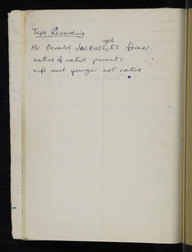 Tape Recording
Mr Oswald JACQUES, aged 53 farmer
native of native parents
wife much younger not native